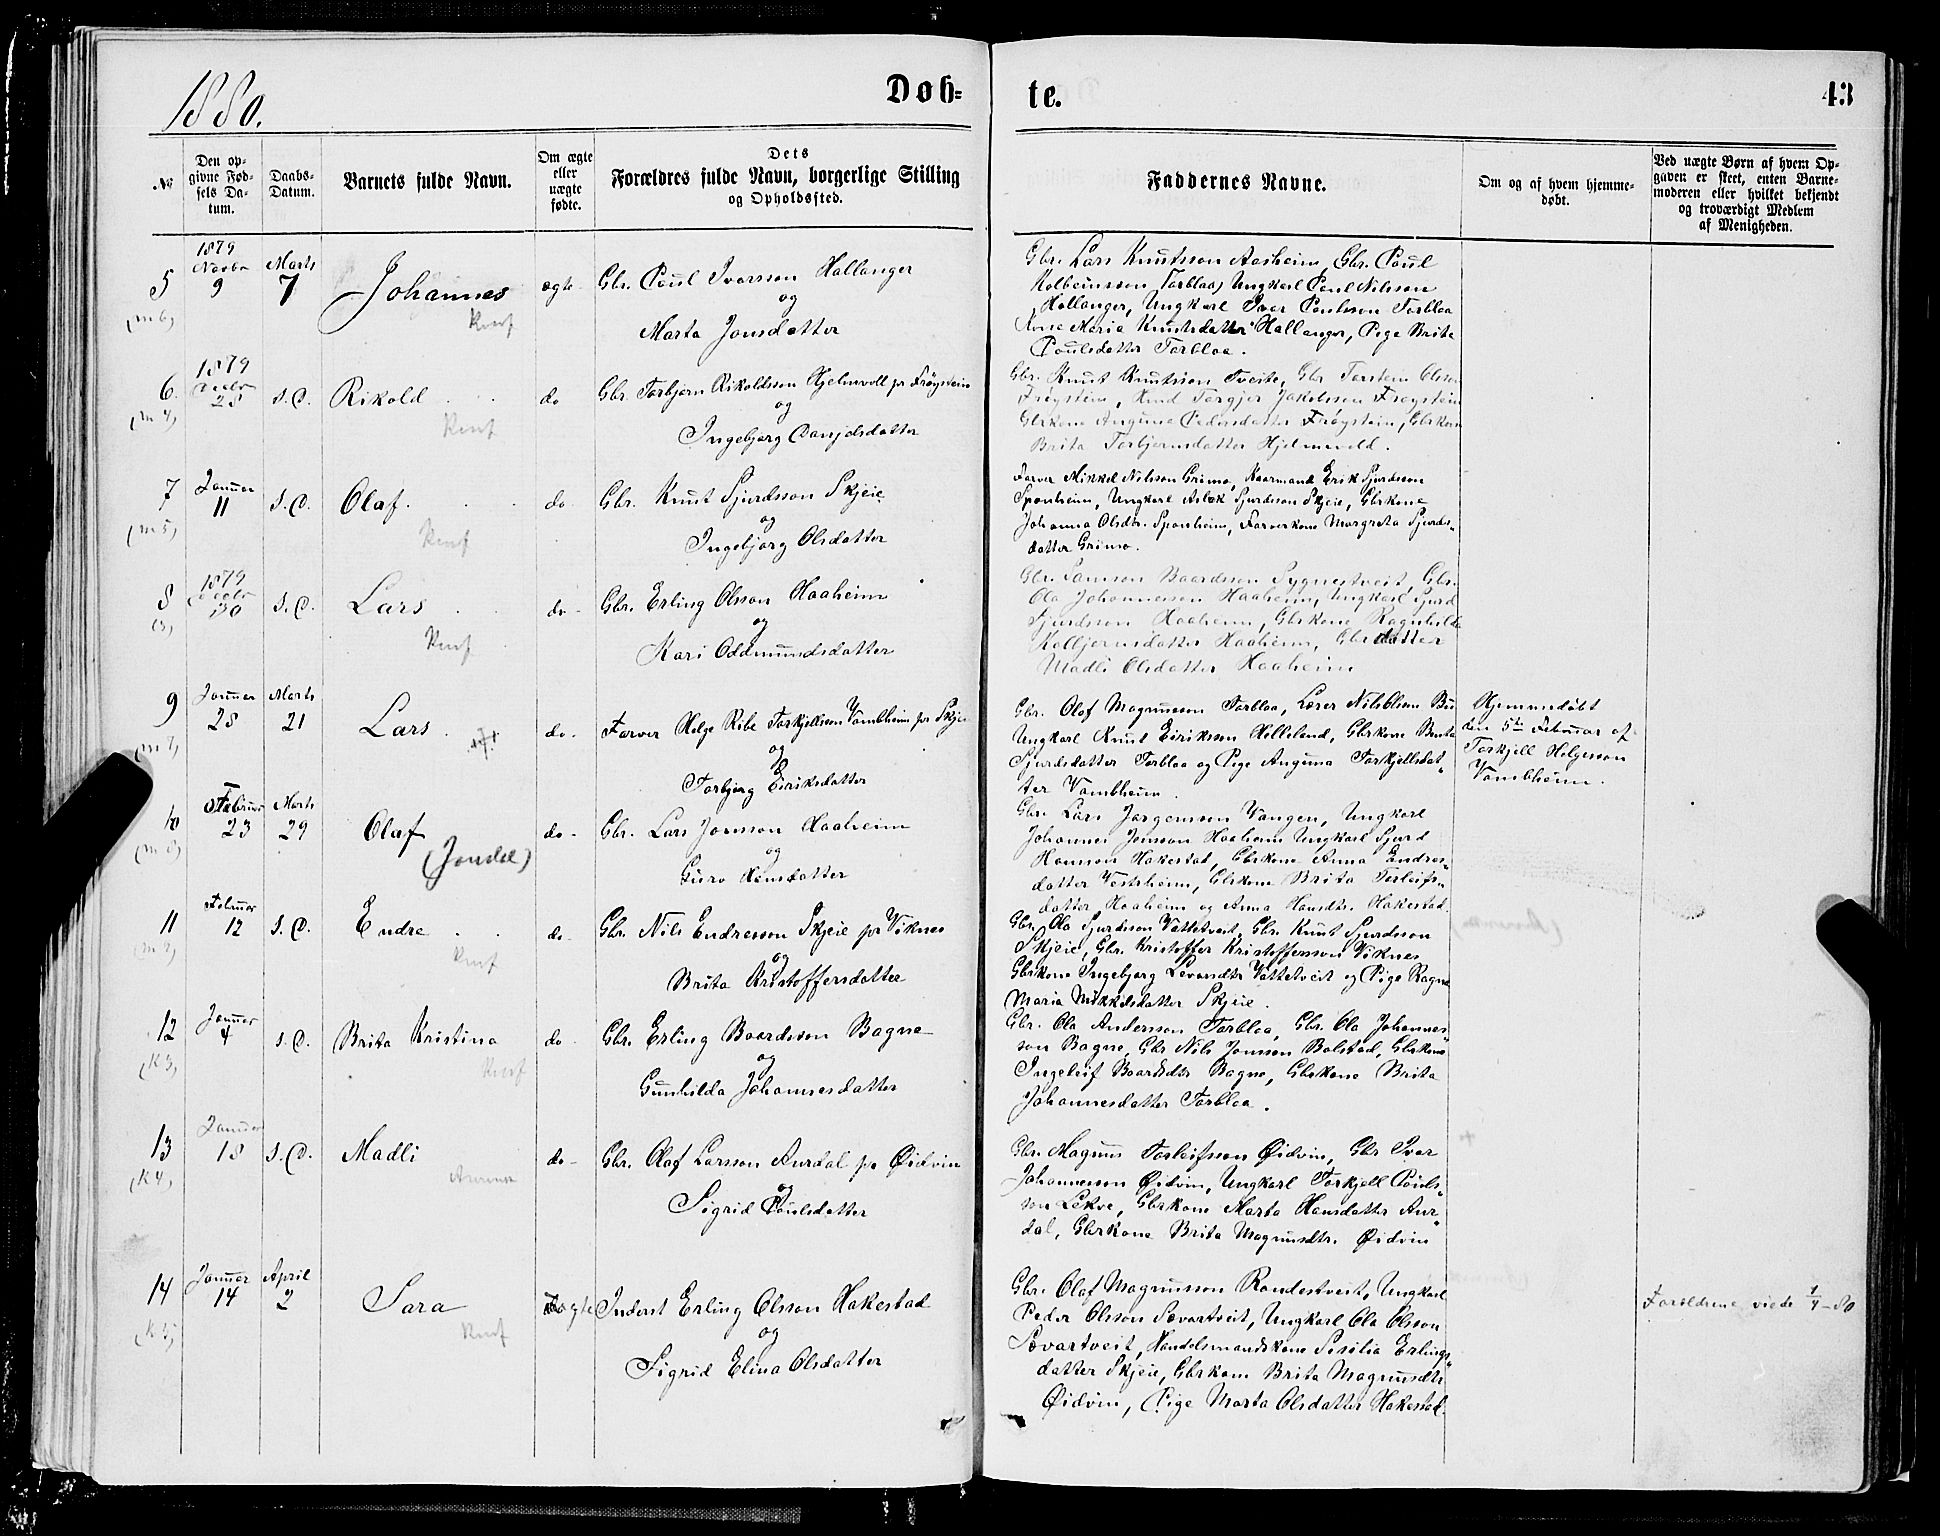 1880.
Døb=
te.
43
No
Den op=
givne Fød=
sels Da=
tum.
Daabs=
Datum.
Barnets fulde Navn.
Om ægte
eller
uægte
fødte.
Dets
Forældres fulde Navn, borgerlige Stilling
og Opholdssted.
Faddernes Navne.
Om og af hvem hjemme=
døbt.
Ved uægte Børn af hvem Op=
gaven er skeet, enten Barne=
moderen eller hvilket bekjendt
og troværdigt Medlem
af Menigheden.
5
(m 6)
1879
Novbr
9
Marts
7
Johannes
ægte
Gbr. Poul Ivarsson Hallanger
og
Marta Jonsdatter
Gbr. Lars Knutsson Aasheim, Gbr. Poul
Kolbeinsson Torblaa, Ungkarl Poul Nilsson
Hallanger, Ungkarl Ivar Poulsson Torblaa
Kone Maria Knutsdatter Hallanger, Pige Brita
Poulsdatter Torblaa.
6.
(m 4)
1879
Decbr
28
s. D.
Rikold
do
Gbr. Torbjørn Rikoldsson Hjelmvoll pr Frøystein
og
Ingebjørg Danjelsdatter
Gbr. Knut Knutsson Tveite, Gbr Torstein Olsson
Frøystein, Knud Torgjer Jakobsson Frøystein
Gbrkone Angunna Pedersdatter Frøystein, Gbrkone
Brita Torbjørnsdatter Hjelmevold.
7
(m 5)
Januar
11
s. D.
Olaf
do
Gbr. Knut Sjurdsson Skjeie
og
Ingebjørg Olsdatter
Farver Mikkel Nilsson Grimo, Kaarmand Erik Sjurdsson
Sponheim, Ungkarl Aslak Sjurdsson Skjeie, Gbrkone
Johanna Olsdtr. Sponheim, Farverkone Margreta Sjurds-
datter Grimo.
8
1879
Decbr
30
s. D.
Lars
do
Gbr. Erling Olsson Haaheim
og
Kari Oddmundsdatter
Gbr. Samson Baardsson Sygnestveit, Gbr.
Ola Johannesson Haaheim, Ungkarl Sjurd
Sjurdsson Haaheim, Gbrkone Ragnhilda
Kolbjørnsdatter Haaheim, Gbrdatter
Madli Olsdatter Haaheim
9
(m 7)
Januar
28
Marts
21
Lars
do
Farver Helge Ribe Torkjellsson Vambheim pr Skjeie
og
Torbjørg Eiriksdatter
Gbr. Olaf Magnusson Torblaa, Lærer Nils Olsson Bu
Ungkarl Knut Eiriksson Helleland, Gbrkone Brita
Sjurdsdatter Torblaa og Pige Angunna Torkjellsdat-
ter Vambheim.
Hjemmedøbt
den 5te Februar af
Torkjell Helgesson
Vambheim.
10
(m 8)
Februar
23
Marts
29
Olaf
(Jondal)
do
Gbr. Lars Jonsson Haaheim
og
Guro Hansdatter
Gbr. Lars Jørgensson Vangen, Ungkarl
Johannes Jonsson Haaheim Ungkarl Sjurd
Hansson Hakestad, Gbrkone Anna Endres-
datter Vestrheim, Gbrkone Brita Torleifs-
datter Haaheim og Anna Hansdtr. Hakestad.
11
Februar
12
s. D.
Endre
do
Gbr. Nils Endresson Skjeie pr Viknes
og
Brita Kristoffersdatter
Gbr. Ola Sjurdsson Vattetveit, Gbr. Knut Sjurdsson
Skjeie, Gbr. Kristoffer Kristoffersson Viknes
Gbrkone Ingebjørg Levordsdtr Vattetveit og Pige Ragna
Maria Mikkelsdatter Skjeie.
12
(K 3)
Januar
4
s. D.
Brita Kristina
do
Gbr. Erling Baardsson Bagne
og
Gunhilda Johannesdatter
Gbr. Ola Andersson Torblaa, Gbr. Ola Johannes-
son Bagne, Gbr Nils Jonsson Bolstad, Gbrkone
Ingeleif Baardsdtr Bagne, Gbrkone Brita
Johannesdatter Torblaa.
13
(K 4)
Januar
18
s. D.
Madli
do
Gbr. Olaf Larsson Aurdal pr Øidvin
og
Sigrid Poulsdatter
Gbr. Magnus Torleifsson Øidvin, Gbr Ivar
Johannesson Øidvin, Ungkarl Torkjell Pouls-
son Lekve, Gbrkone Marta Hansdatter Aur-
dal, Gbrkone Brita Magnusdtr. Øidvin
14
(K 5)
Januar
14
April
2
Sara
Inderst Erling Olsson Hakestad
og
Sigrid Elina Olsdatter
Gbr. Olaf Magnusson Rondestveit, Ungkarl
Peder Olsson Sævartveit, Ungkarl Ola Olsson
Sævartveit, Handelsmandskone Sisilia Erlings-
datter Skjeie, Gbrkone Brita Magnusdtr
Øidvin, Pige Marta Olsdatter Hakestad.
Forældrene viede 1/4-80